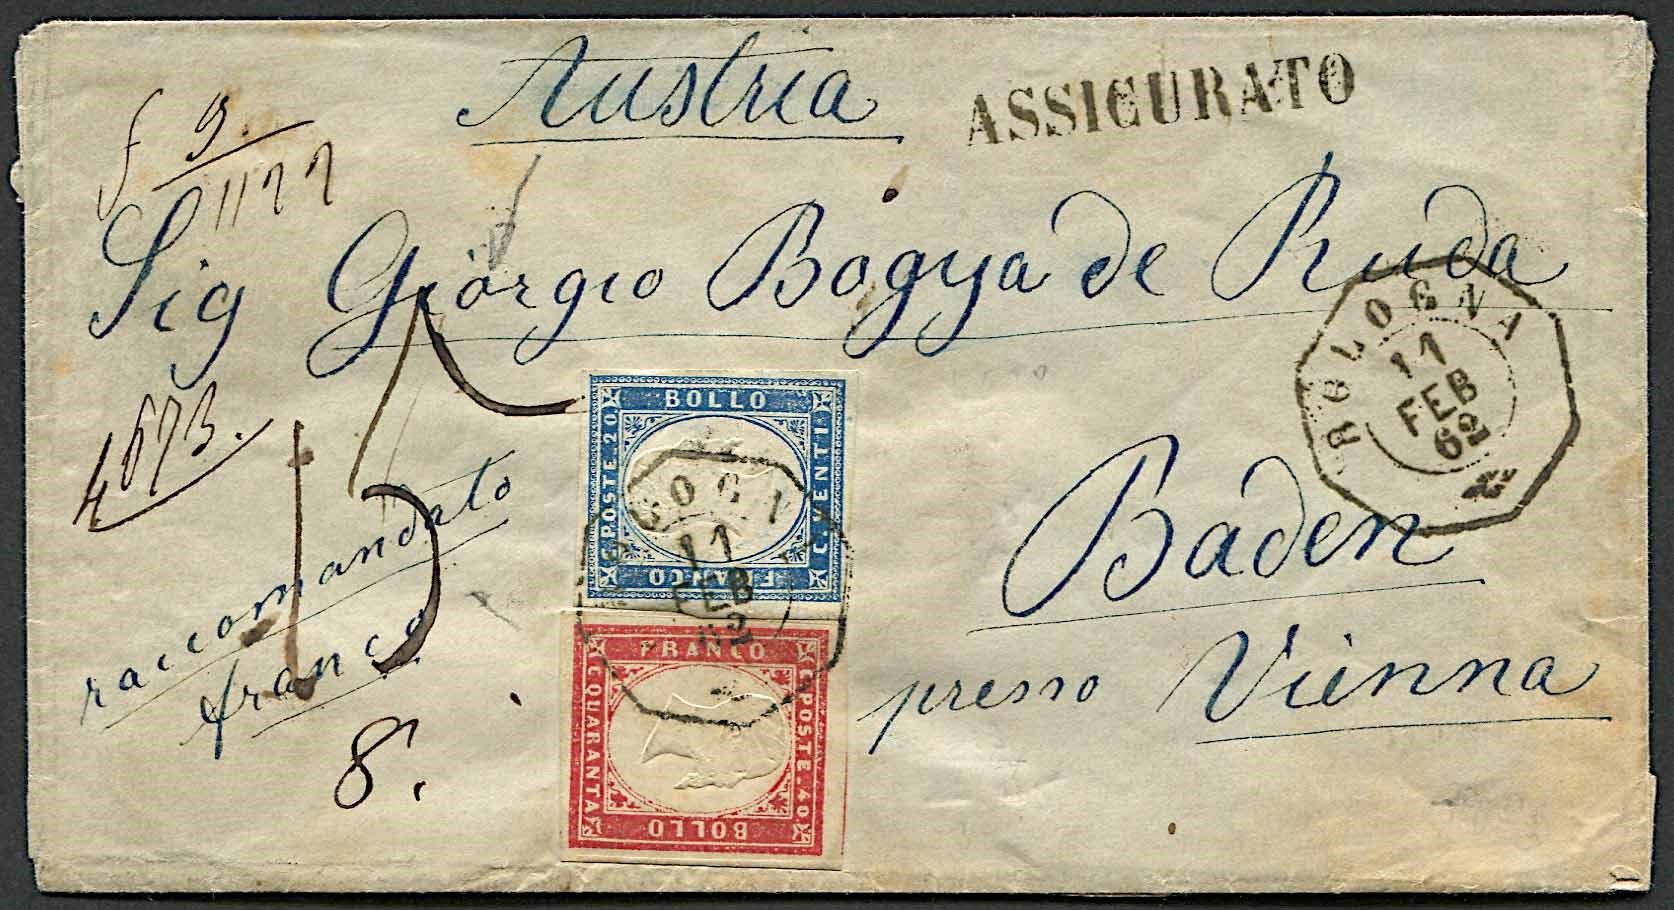 Austria
ASSIGURATO
f 9.
1177
Sig Giorgio Bogya de Ruda
BOLOGNA
11
FEB
62
4673.
15
raccomandato
franco
8.
BOLLO
C. VENTI
FRANCO
POSTE. 20
BOLOGNA
11
FEB
62
FRANCO
POSTE. 40
BOLLO
C QUARANTA
Baden
presso Vienna